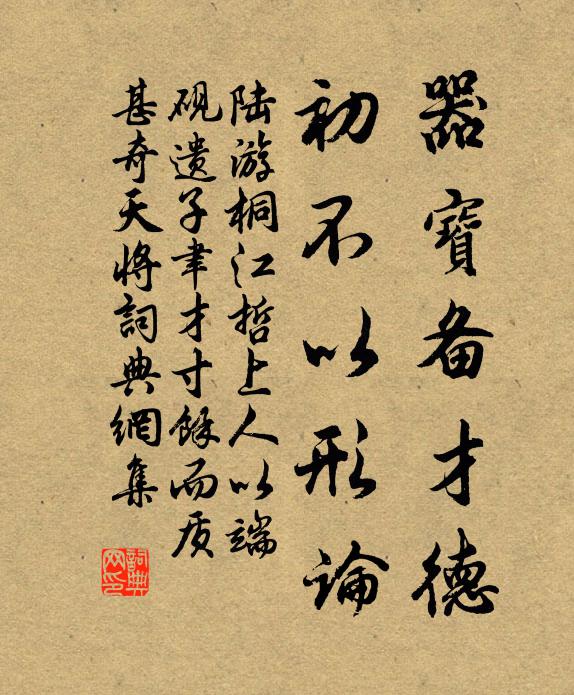 器寶备才德
初不以形論
陆游桐江哲上人以端
砚遗子聿才寸餘而质
甚奇天将詞典網集
詞典网印